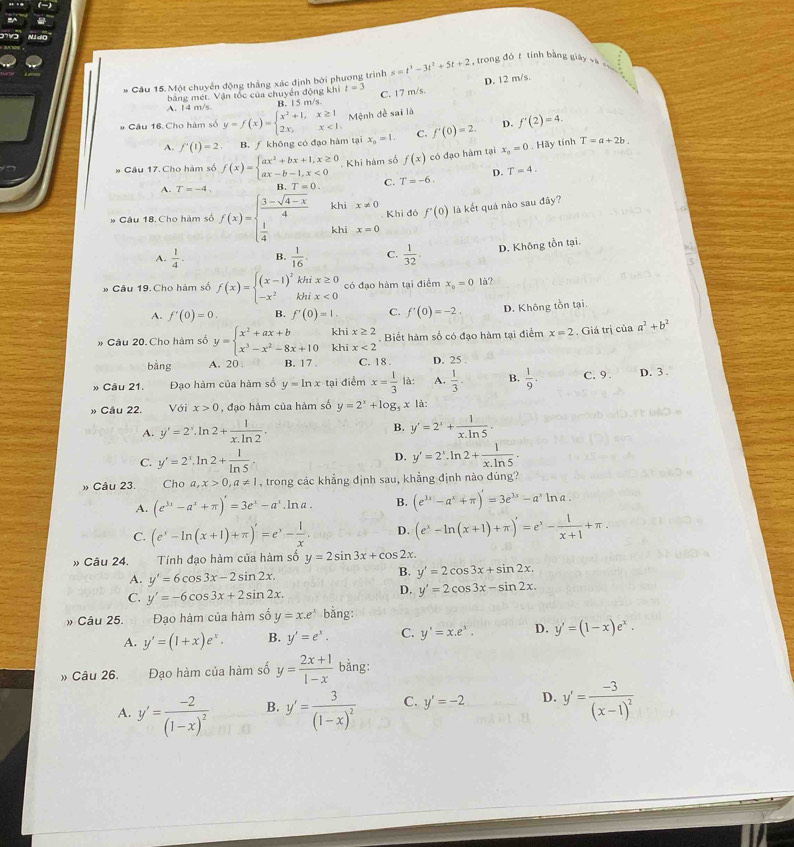 (−)
CALC
» Câu 15. Một chuyển động thẳng xác định bởi phương trình s = t³ − 3t² + 5t + 2, trong đó t tính bằng giây và
bằng mét. Vận tốc của chuyển động khi t = 3
A. 14 m/s. B. 15 m/s. C. 17 m/s. D. 12 m/s.
» Câu 16. Cho hàm số y = f(x) = { x² + 1, x ≥ 1 ; 2x, x < 1. Mệnh đề sai là
A. f'(1) = 2. B. f không có đạo hàm tại x₀ = 1. C. f'(0) = 2. D. f'(2) = 4.
» Câu 17. Cho hàm số f(x) = { ax² + bx + 1, x ≥ 0 ; ax − b − 1, x < 0 . Khi hàm số f(x) có đạo hàm tại x₀ = 0. Hãy tính T = a + 2b.
A. T = −4. B. T = 0. C. T = −6. D. T = 4.
» Câu 18. Cho hàm số f(x) = { (3 − √(4 − x))/4 khi x ≠ 0 ; 1/4 khi x = 0 . Khi đó f'(0) là kết quả nào sau đây?
A. 1/4. B. 1/16. C. 1/32. D. Không tồn tại.
» Câu 19. Cho hàm số f(x) = { (x − 1)² khi x ≥ 0 ; −x² khi x < 0 có đạo hàm tại điểm x₀ = 0 là?
A. f'(0) = 0. B. f'(0) = 1. C. f'(0) = −2. D. Không tồn tại.
» Câu 20. Cho hàm số y = { x² + ax + b khi x ≥ 2 ; x³ − x² − 8x + 10 khi x < 2 . Biết hàm số có đạo hàm tại điểm x = 2. Giá trị của a² + b²
bằng A. 20 B. 17. C. 18. D. 25.
» Câu 21. Đạo hàm của hàm số y = ln x tại điểm x = 1/3 là: A. 1/3. B. 1/9. C. 9. D. 3.
» Câu 22. Với x > 0, đạo hàm của hàm số y = 2ˣ + log₅ x là:
A. y' = 2ˣ.ln 2 + 1/(x.ln 2). B. y' = 2ˣ + 1/(x.ln 5).
C. y' = 2ˣ.ln 2 + 1/(ln 5). D. y' = 2ˣ.ln 2 + 1/(x.ln 5).
» Câu 23. Cho a, x > 0, a ≠ 1, trong các khẳng định sau, khẳng định nào đúng?
A. (e³ˣ − aˣ + π)' = 3eˣ − aˣ.ln a. B. (e³ˣ − aˣ + π)' = 3e³ˣ − aˣ ln a.
C. (eˣ − ln(x + 1) + π)' = eˣ − 1/x. D. (eˣ − ln(x + 1) + π)' = eˣ − 1/(x + 1) + π.
» Câu 24. Tính đạo hàm của hàm số y = 2 sin 3x + cos 2x.
A. y' = 6 cos 3x − 2 sin 2x. B. y' = 2 cos 3x + sin 2x.
C. y' = −6 cos 3x + 2 sin 2x. D. y' = 2 cos 3x − sin 2x.
» Câu 25. Đạo hàm của hàm số y = x.eˣ bằng:
A. y' = (1 + x)eˣ. B. y' = eˣ. C. y' = x.eˣ. D. y' = (1 − x)eˣ.
» Câu 26. Đạo hàm của hàm số y = (2x + 1)/(1 − x) bằng:
A. y' = −2/(1 − x)² B. y' = 3/(1 − x)² C. y' = −2 D. y' = −3/(x − 1)²